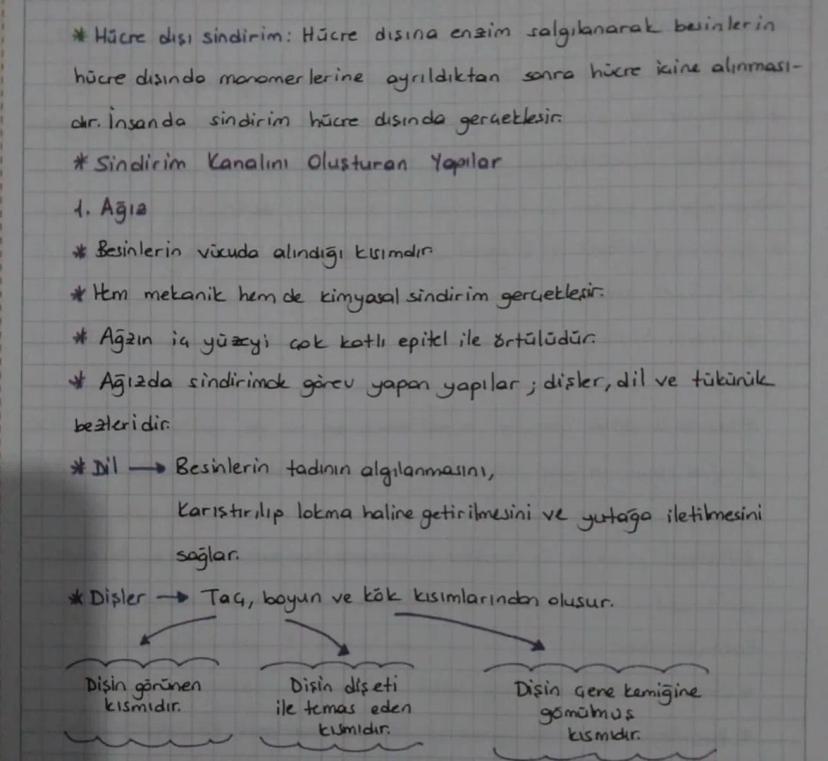 * Hücre dışı sindirim: Hücre dışına enzim salgılanarak besinlerin
hücre dışında monomerlerine ayrıldıktan sonra hücre içine alınması-
dır. İnsanda sindirim hücre dışında gerçekleşir.
* Sindirim Kanalını Oluşturan Yapılar
1. Ağız
* Besinlerin vücuda alındığı kısımdır.
* Hem mekanik hem de kimyasal sindirim gerçekleşir.
* Ağzın iç yüzeyi çok katlı epitel ile örtülüdür.
* Ağızda sindirimde görev yapan yapılar; dişler, dil ve tükürük
bezleridir.
* Dil → Besinlerin tadının algılanmasını,
Karıştırılıp lokma haline getirilmesini ve yutağa iletilmesini
sağlar.
* Dişler → Taç, boyun ve kök kısımlarından oluşur.
Dişin görünen
kısmıdır.
Dişin diş eti
ile temas eden
kısmıdır.
Dişin çene kemiğine
gömülmüş
kısmıdır.